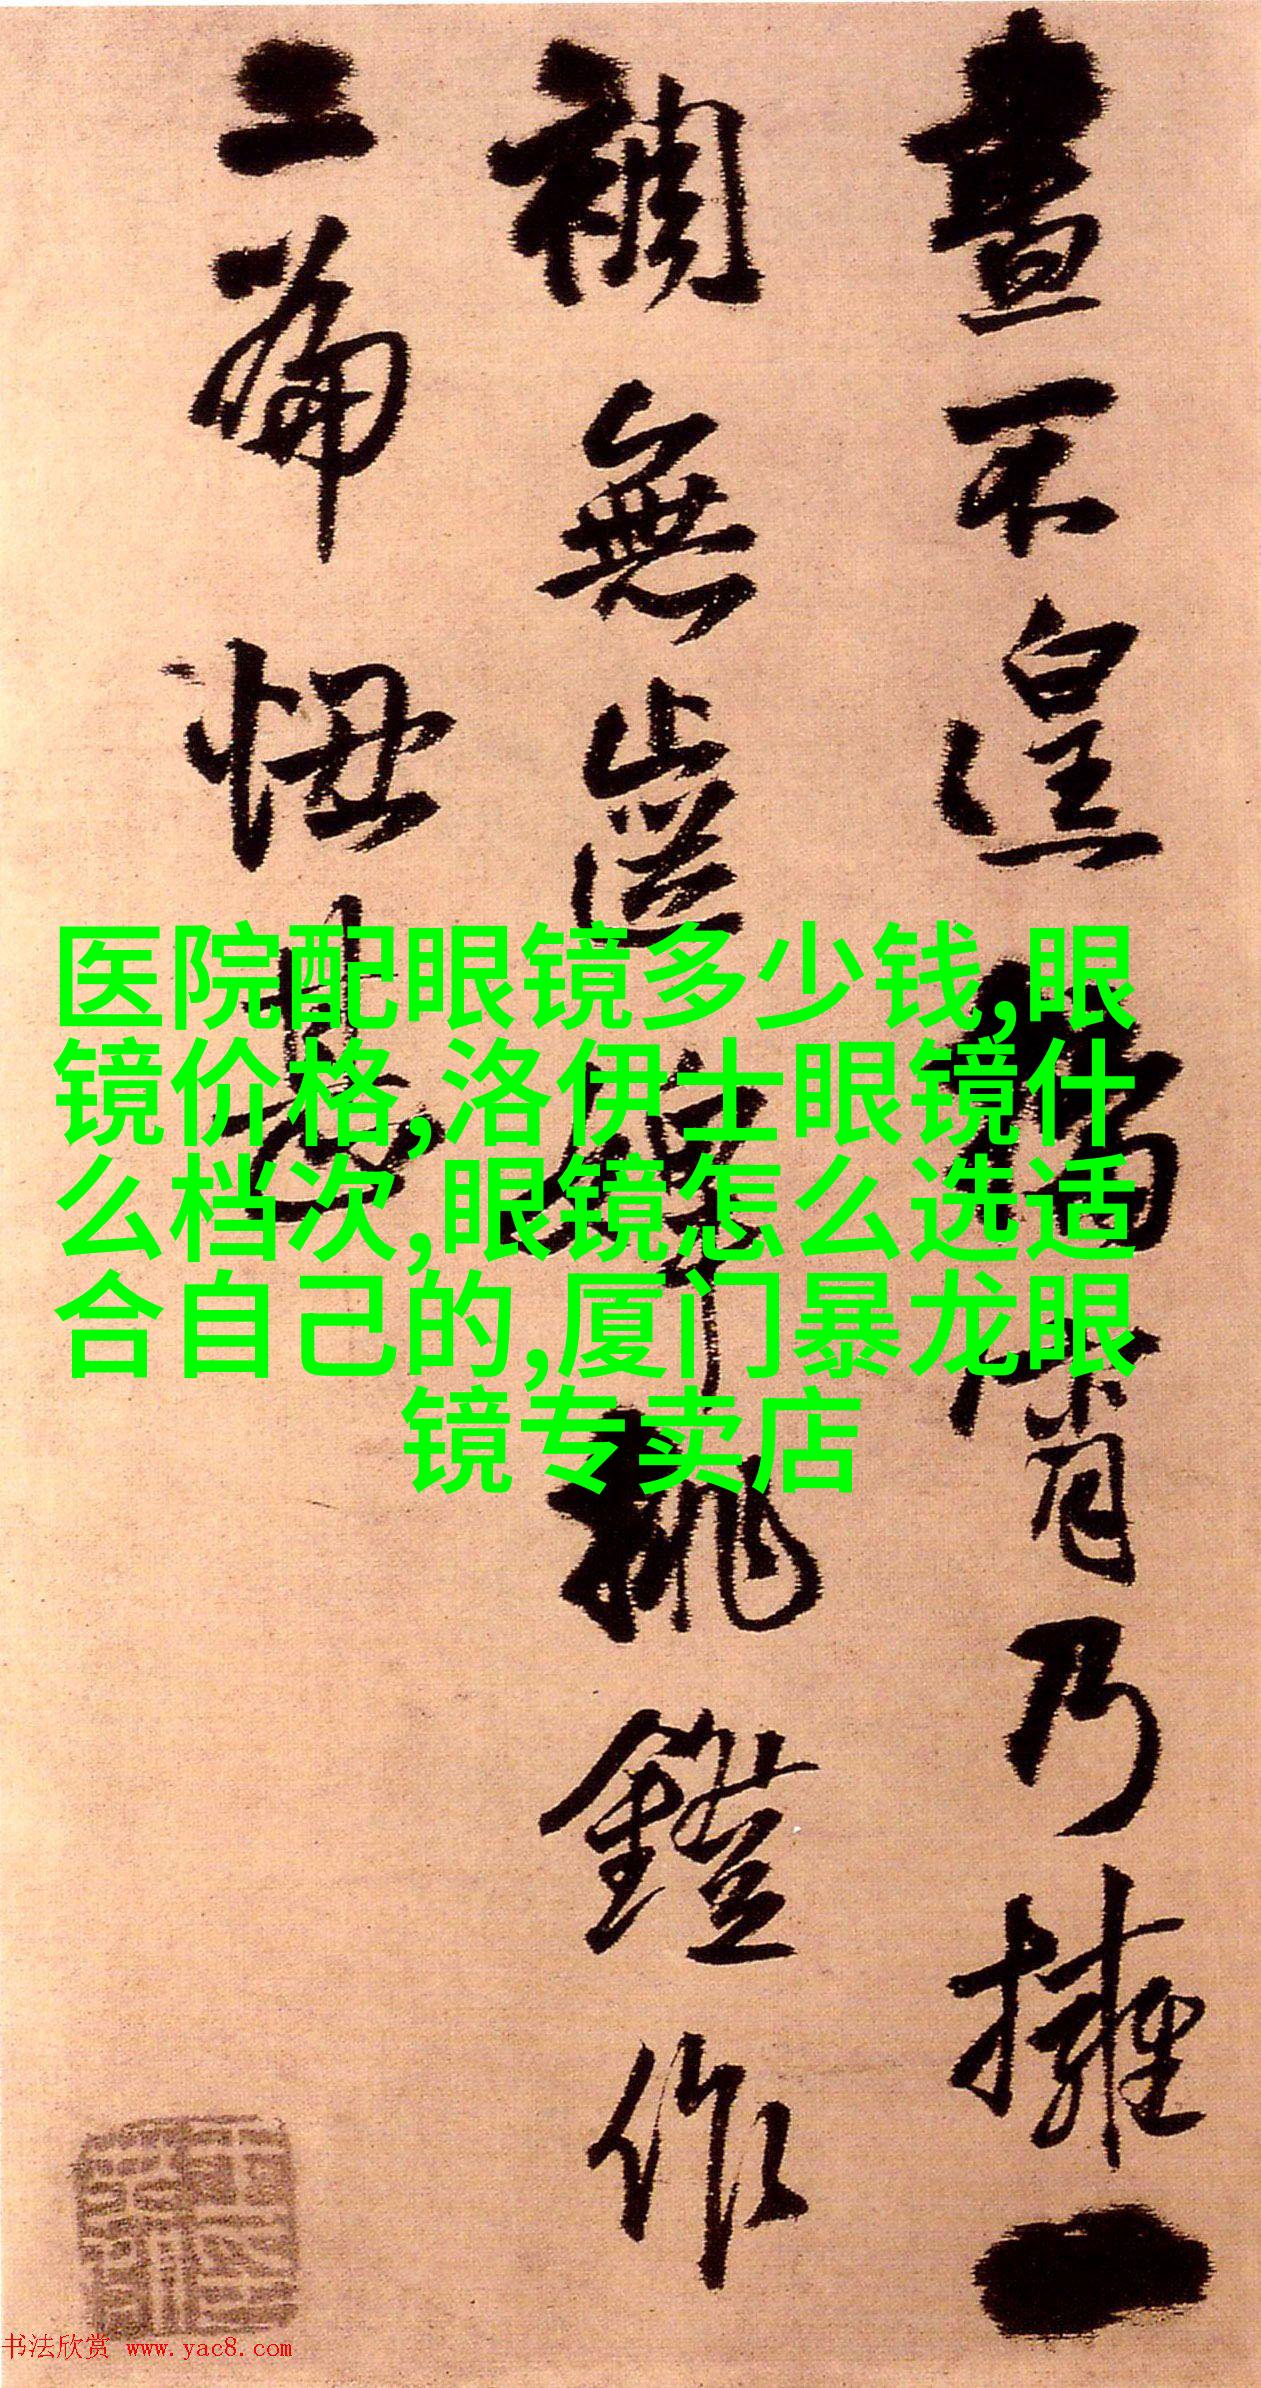 不遑
宵乃擁一
裯無
挑鐙作
二篇
医院配眼镜多少钱,眼
镜价格,洛伊士眼镜什
么档次,眼镜怎么选适
合自己的,厦门暴龙眼
镜专卖店
书法欣赏 www.yac8.com